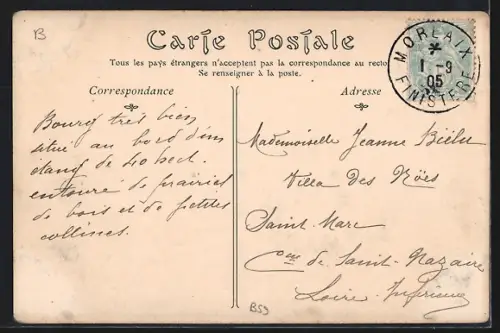 B
Carte Postale
Tous les pays étrangers n'acceptent pas la correspondance au recto
Se renseigner à la poste.
Correspondance
Adresse
MORLAIX
1 - 9
05
FINISTERE
Bourg très bien
situé au bord d'un
étang de 40 hect.
entouré de prairies
de bois et de petites
collines.
Mademoiselle Jeanne
Villa des Noës
Saint Marc
Cne de Saint-Nazaire
Loire-Inférieure
B59